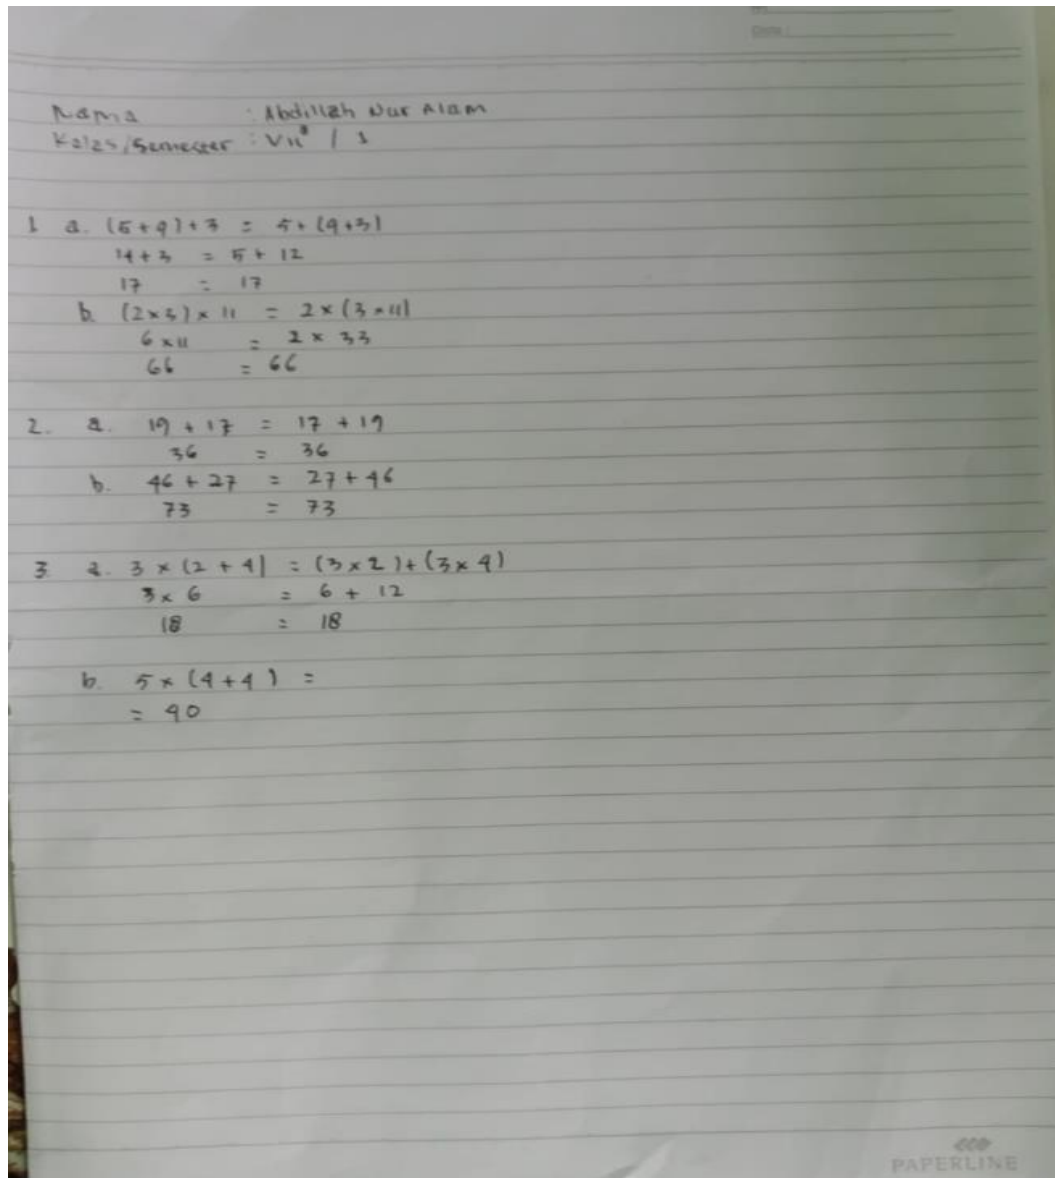 Date :
Nama : Abdillah Nur Alam
Kelas/Semester : VII B / 1
1 a. (5 + 9) + 3 = 5 + (9 + 3)
14 + 3 = 5 + 12
17 = 17
b. (2 × 3) × 11 = 2 × (3 × 11)
6 × 11 = 2 × 33
66 = 66
2. a. 19 + 17 = 17 + 19
36 = 36
b. 46 + 27 = 27 + 46
73 = 73
3 a. 3 × (2 + 4) = (3 × 2) + (3 × 4)
3 × 6 = 6 + 12
18 = 18
b. 5 × (4 + 4) =
= 40
PAPERLINE